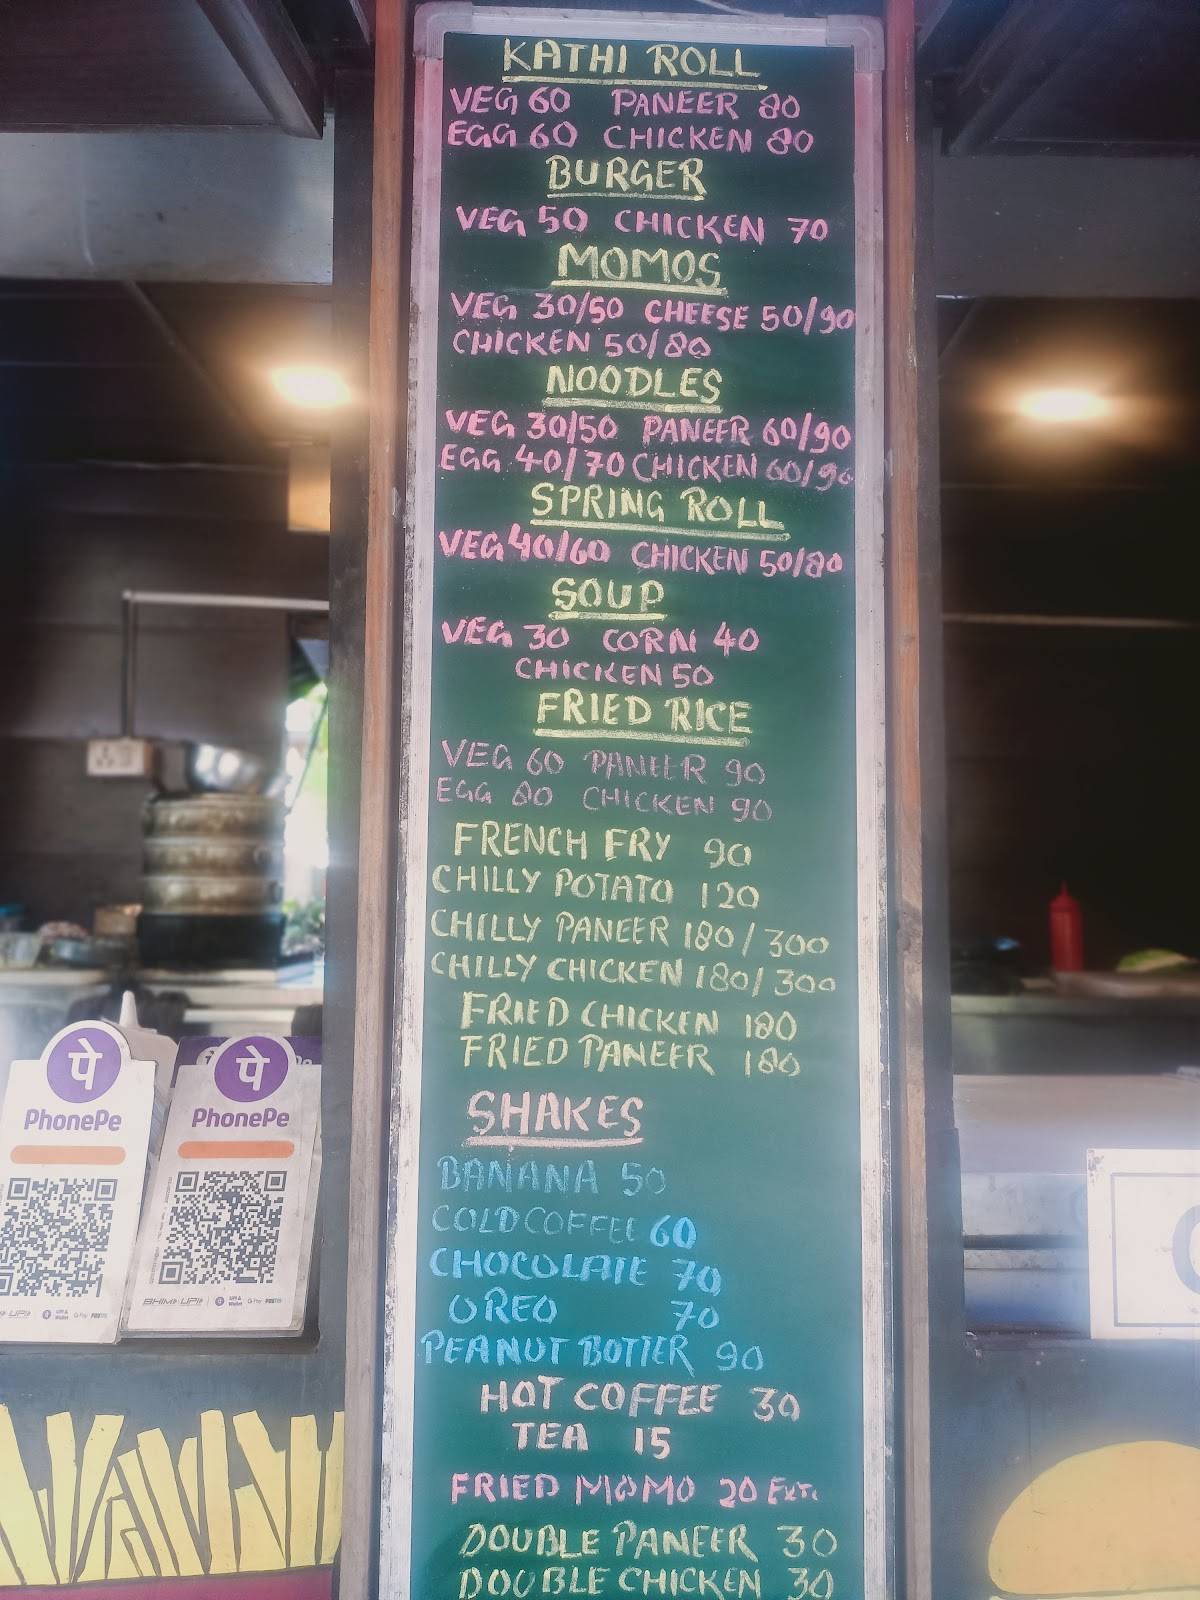 KATHI ROLL
VEG 60 PANEER 80
EGG 60 CHICKEN 80
BURGER
VEG 50 CHICKEN 70
MOMOS
VEG 30/50 CHEESE 50/90
CHICKEN 50/80
NOODLES
VEG 30/50 PANEER 60/90
EGG 40/70 CHICKEN 60/90
SPRING ROLL
VEG 40/60 CHICKEN 50/80
SOUP
VEG 30 CORN 40
CHICKEN 50
FRIED RICE
VEG 60 PANEER 90
EGG 80 CHICKEN 90
FRENCH FRY 90
CHILLY POTATO 120
CHILLY PANEER 180/300
CHILLY CHICKEN 180/300
FRIED CHICKEN 180
FRIED PANEER 180
SHAKES
BANANA 50
COLD COFFEE 60
CHOCOLATE 70
OREO 70
PEANUT BOTTER 90
HOT COFFEE 30
TEA 15
FRIED MOMO 20
DOUBLE PANEER 30
DOUBLE CHICKEN 30
पे
PhonePe
पे
PhonePe
BHIM UPI